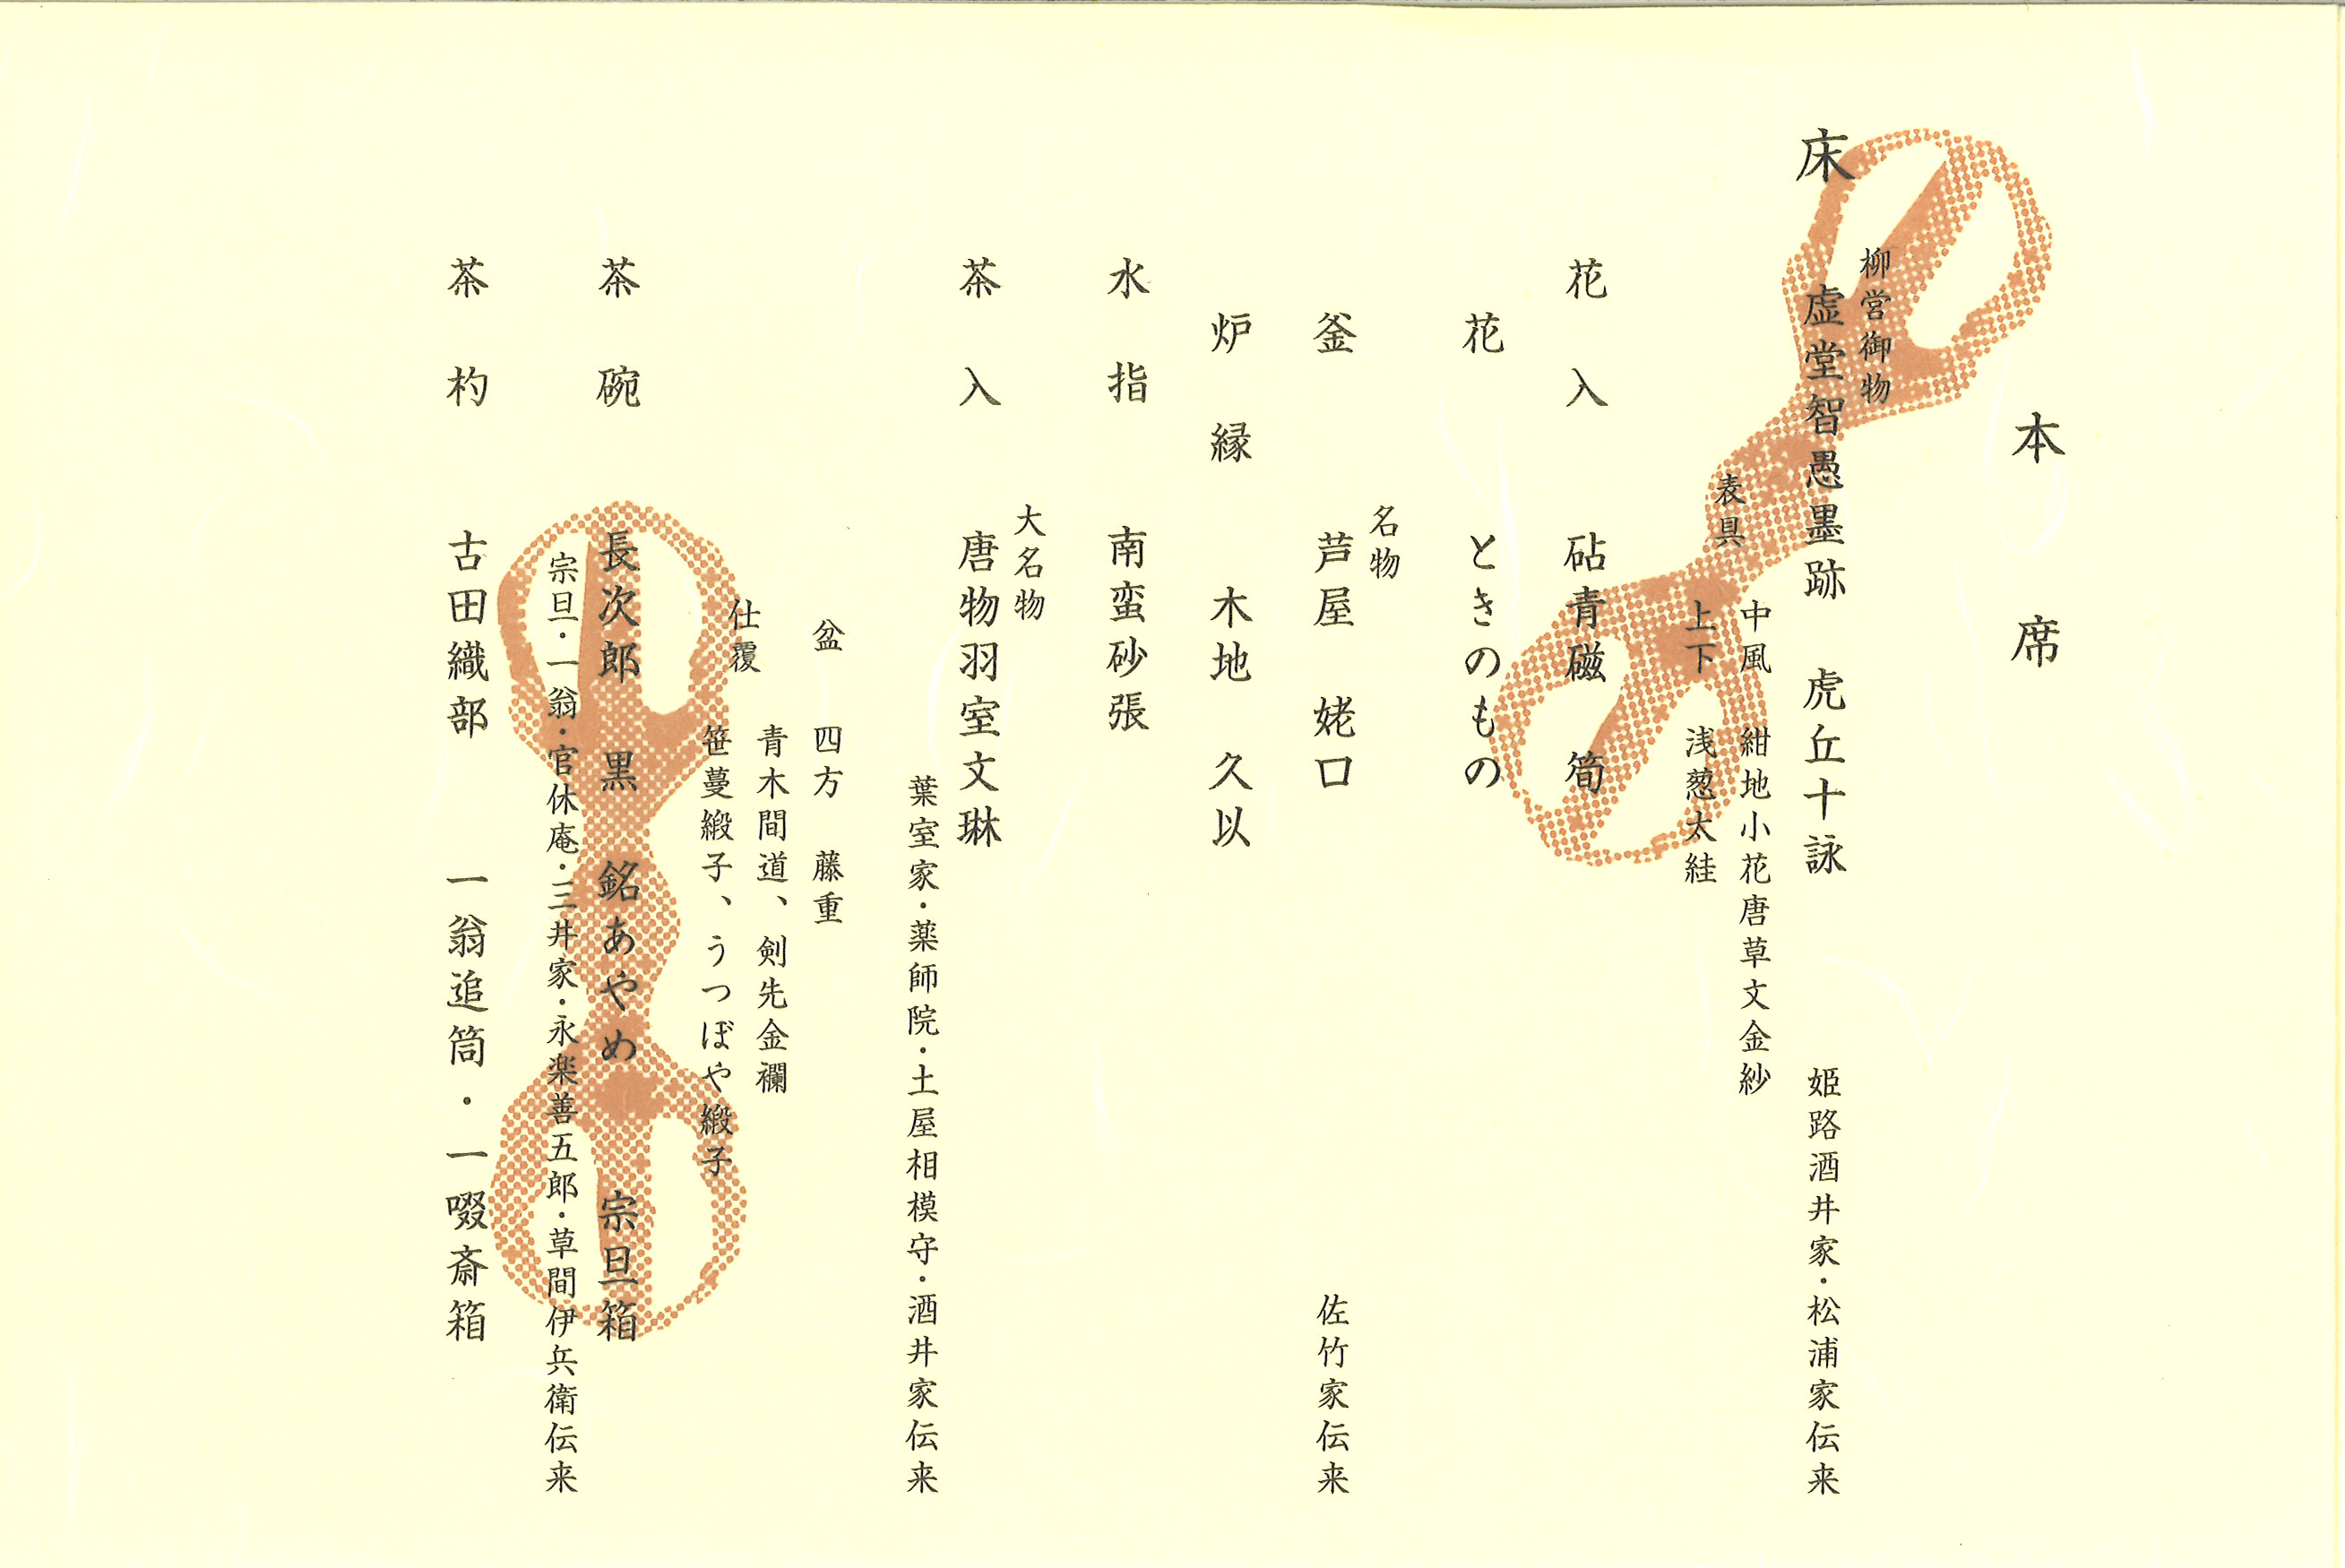 本席
柳営御物
床 虚堂智愚墨跡 虎丘十詠 姫路酒井家・松浦家伝来
表具
中風 紺地小花唐草文金紗
上下 浅葱太絓
花入 砧青磁 筍
花 ときのもの
名物
釜 芦屋 姥口 佐竹家伝来
炉縁 木地 久以
水指 南蛮砂張
大名物
茶入 唐物羽室文琳
葉室家・薬師院・土屋相模守・酒井家伝来
盆 四方 藤重
仕覆
青木間道、剣先金襴
笹蔓緞子、うつぼや緞子
茶碗 長次郎 黒 銘あやめ 宗旦箱
宗旦・一翁・官休庵・三井家・永楽善五郎・草間伊兵衛伝来
茶杓 古田織部 一翁追筒・一啜斎箱